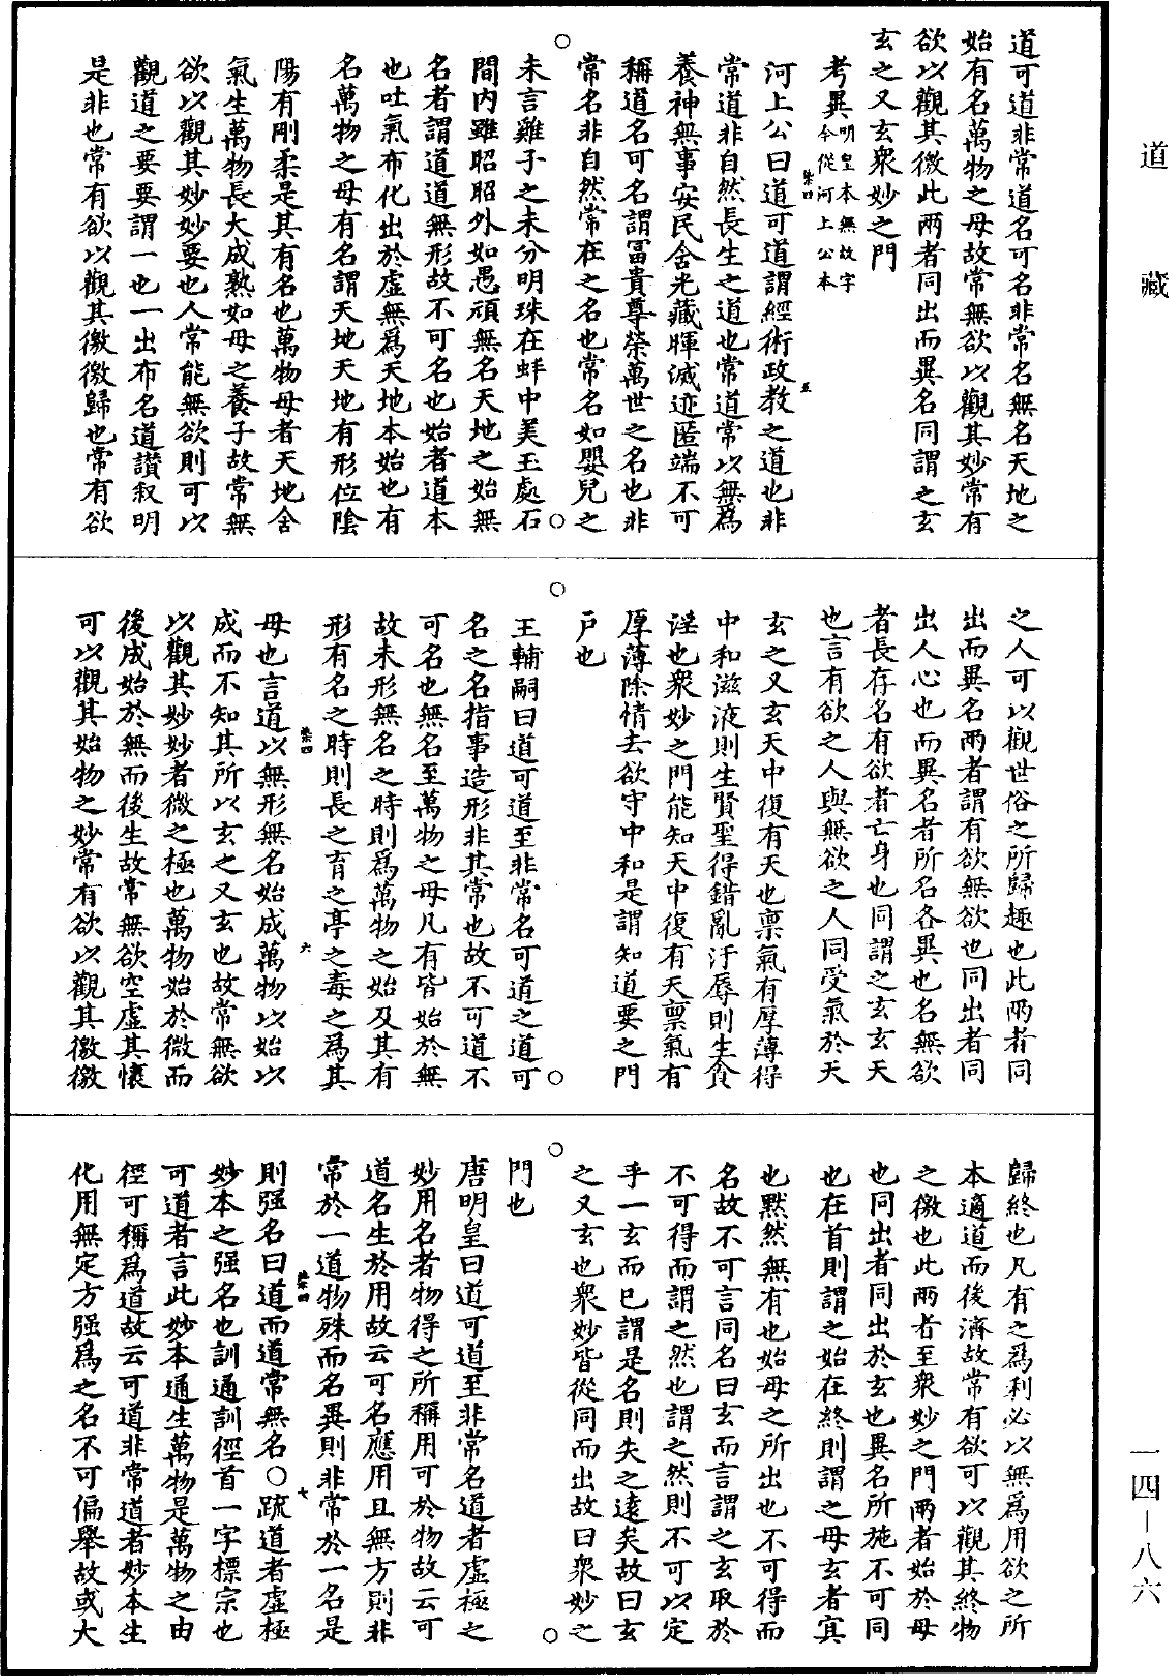 道藏
道可道非常道名可名非常名無名天地之
始有名萬物之母故常無欲以觀其妙常有
欲以觀其徼此兩者同出而異名同謂之玄
玄之又玄衆妙之門
考異明皇本無故字
今從河上公本
柴四
五
河上公曰道可道謂經術政教之道也非
常道非自然長生之道也常道常以無爲
養神無事安民含光藏暉滅迹匿端不可
稱道名可名謂富貴尊榮萬世之名也非
常名非自然常在之名也常名如嬰兒之
未言雞子之未分明珠在蚌中美玉處石
間内雖昭昭外如愚頑無名天地之始無
名者謂道道無形故不可名也始者道本
也吐氣布化出於虛無爲天地本始也有
名萬物之母有名謂天地天地有形位陰
陽有剛柔是其有名也萬物母者天地含
氣生萬物長大成熟如母之養子故常無
欲以觀其妙妙要也人常能無欲則可以
觀道之要要謂一也一出布名道讚叙明
是非也常有欲以觀其徼徼歸也常有欲
之人可以觀世俗之所歸趣也此兩者同
出而異名兩者謂有欲無欲也同出者同
出人心也而異名者所名各異也名無欲
者長存名有欲者亡身也同謂之玄玄天
也言有欲之人與無欲之人同受氣於天
玄之又玄天中復有天也禀氣有厚薄得
中和滋液則生賢聖得錯亂汙辱則生貪
淫也衆妙之門能知天中復有天禀氣有
厚薄除情去欲守中和是謂知道要之門
戶也
王輔嗣曰道可道至非常名可道之道可
名之名指事造形非其常也故不可道不
可名也無名至萬物之母凡有皆始於無
故未形無名之時則爲萬物之始及其有
形有名之時則長之育之亭之毒之爲其
柴四
六
母也言道以無形無名始成萬物以始以
成而不知其所以玄之又玄也故常無欲
以觀其妙妙者微之極也萬物始於微而
後成始於無而後生故常無欲空虛其懷
可以觀其始物之妙常有欲以觀其徼徼
歸終也凡有之爲利必以無爲用欲之所
本適道而後濟故常有欲可以觀其終物
之徼也此兩者至衆妙之門兩者始於母
也同出者同出於玄也異名所施不可同
也在首則謂之始在終則謂之母玄者冥
也默然無有也始母之所出也不可得而
名故不可言同名曰玄而言謂之玄取於
不可得而謂之然也謂之然則不可以定
乎一玄而已謂是名則失之遠矣故曰玄
之又玄也衆妙皆從同而出故曰衆妙之
門也
唐明皇曰道可道至非常名道者虛極之
妙用名者物得之所稱用可於物故云可
道名生於用故云可名應用且無方則非
常於一道物殊而名異則非常於一名是
柴四
七
則强名曰道而道常無名○疏道者虛極
妙本之强名也訓通訓徑首一字標宗也
可道者言此妙本通生萬物是萬物之由
徑可稱爲道故云可道非常道者妙本生
化用無定方强爲之名不可偏舉故或大
一四—八六